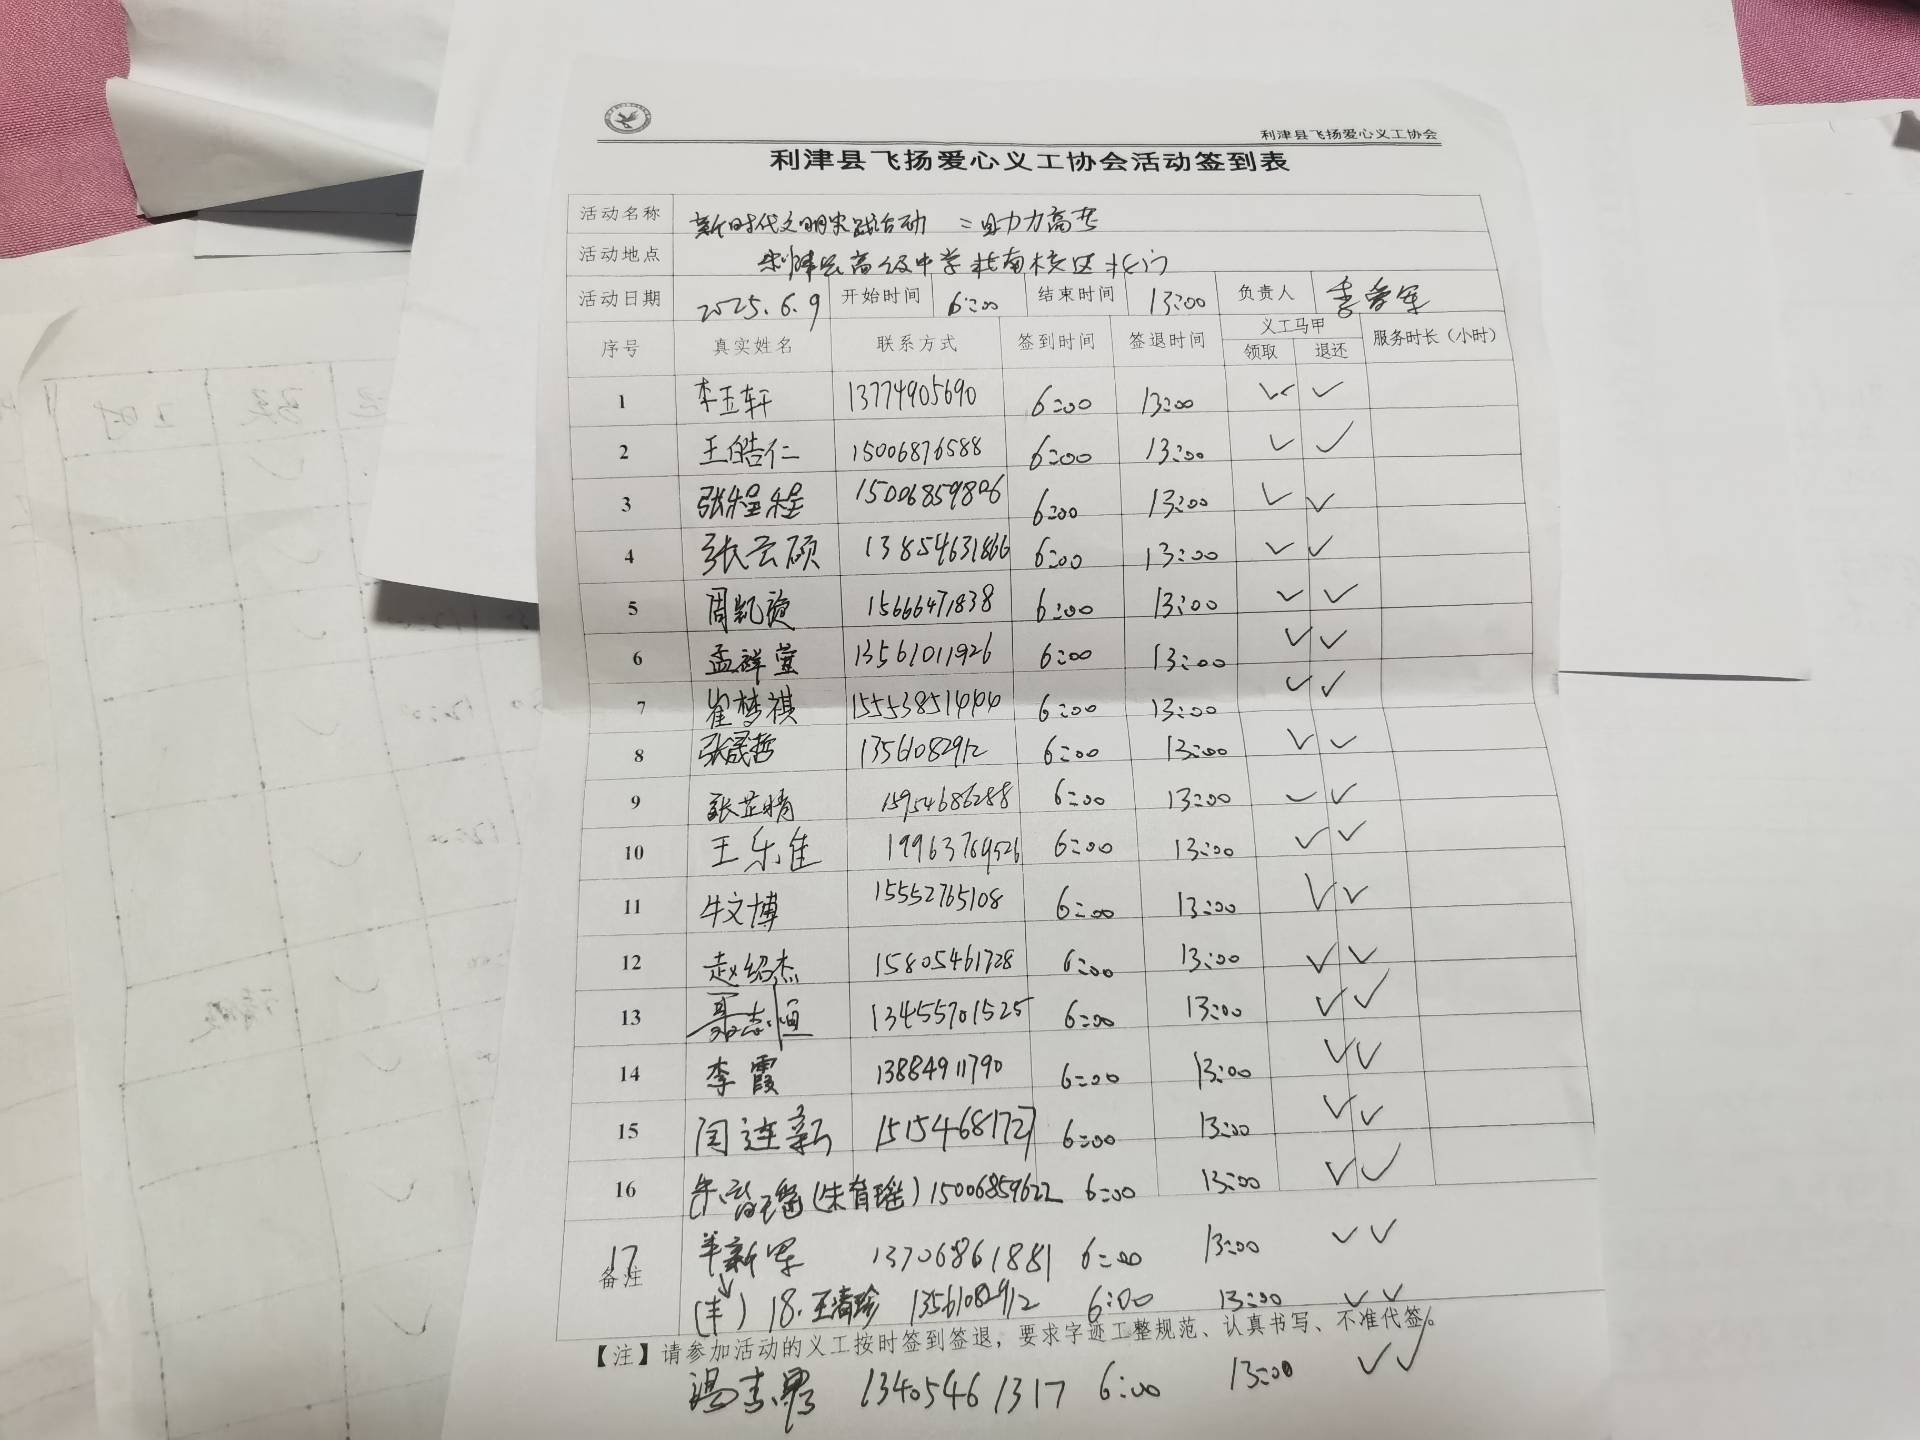 利津县飞扬爱心义工协会
利津县飞扬爱心义工协会活动签到表
活动名称 新时代文明实践活动 =助力高考
活动地点 利津县高级中学 南校区北门
活动日期 2025.6.9 开始时间 6:00 结束时间 13:00 负责人 李爱军
序号 真实姓名 联系方式 签到时间 签退时间 义工马甲 领取 退还 服务时长（小时）
1 李玉轩 13774905690 6:00 13:00 ✓ ✓
2 王皓仁 15006876588 6:00 13:00 ✓ ✓
3 张程程 15006859806 6:00 13:00 ✓ ✓
4 张云硕 13854631866 6:00 13:00 ✓ ✓
5 周凯 15666471838 6:00 13:00 ✓ ✓
6 孟祥堂 13561011926 6:00 13:00 ✓ ✓
7 崔梦祺 15553851404 6:00 13:00 ✓ ✓
8 张晟哲 13561082912 6:00 13:00 ✓ ✓
9 张芷晴 15954686288 6:00 13:00 ✓ ✓
10 王乐佳 19963769526 6:00 13:00 ✓ ✓
11 牛文博 15552765108 6:00 13:00 ✓ ✓
12 赵绍杰 15805461728 6:00 13:00 ✓ ✓
13 聂志恒 13455701525 6:00 13:00 ✓ ✓
14 李霞 13884911790 6:00 13:00 ✓ ✓
15 闫连新 15154681727 6:00 13:00 ✓ ✓
16 朱育瑶（朱育瑶）15006859622 6:00 13:00 ✓ ✓
17 备注 羊新军 13706861881 6:00 13:00 ✓ ✓
(丰) 18.王清珍 13561082912 6:00 13:00 ✓ ✓
【注】请参加活动的义工按时签到签退，要求字迹工整规范、认真书写、不准代签。
13405461317 6:00 13:00 ✓ ✓